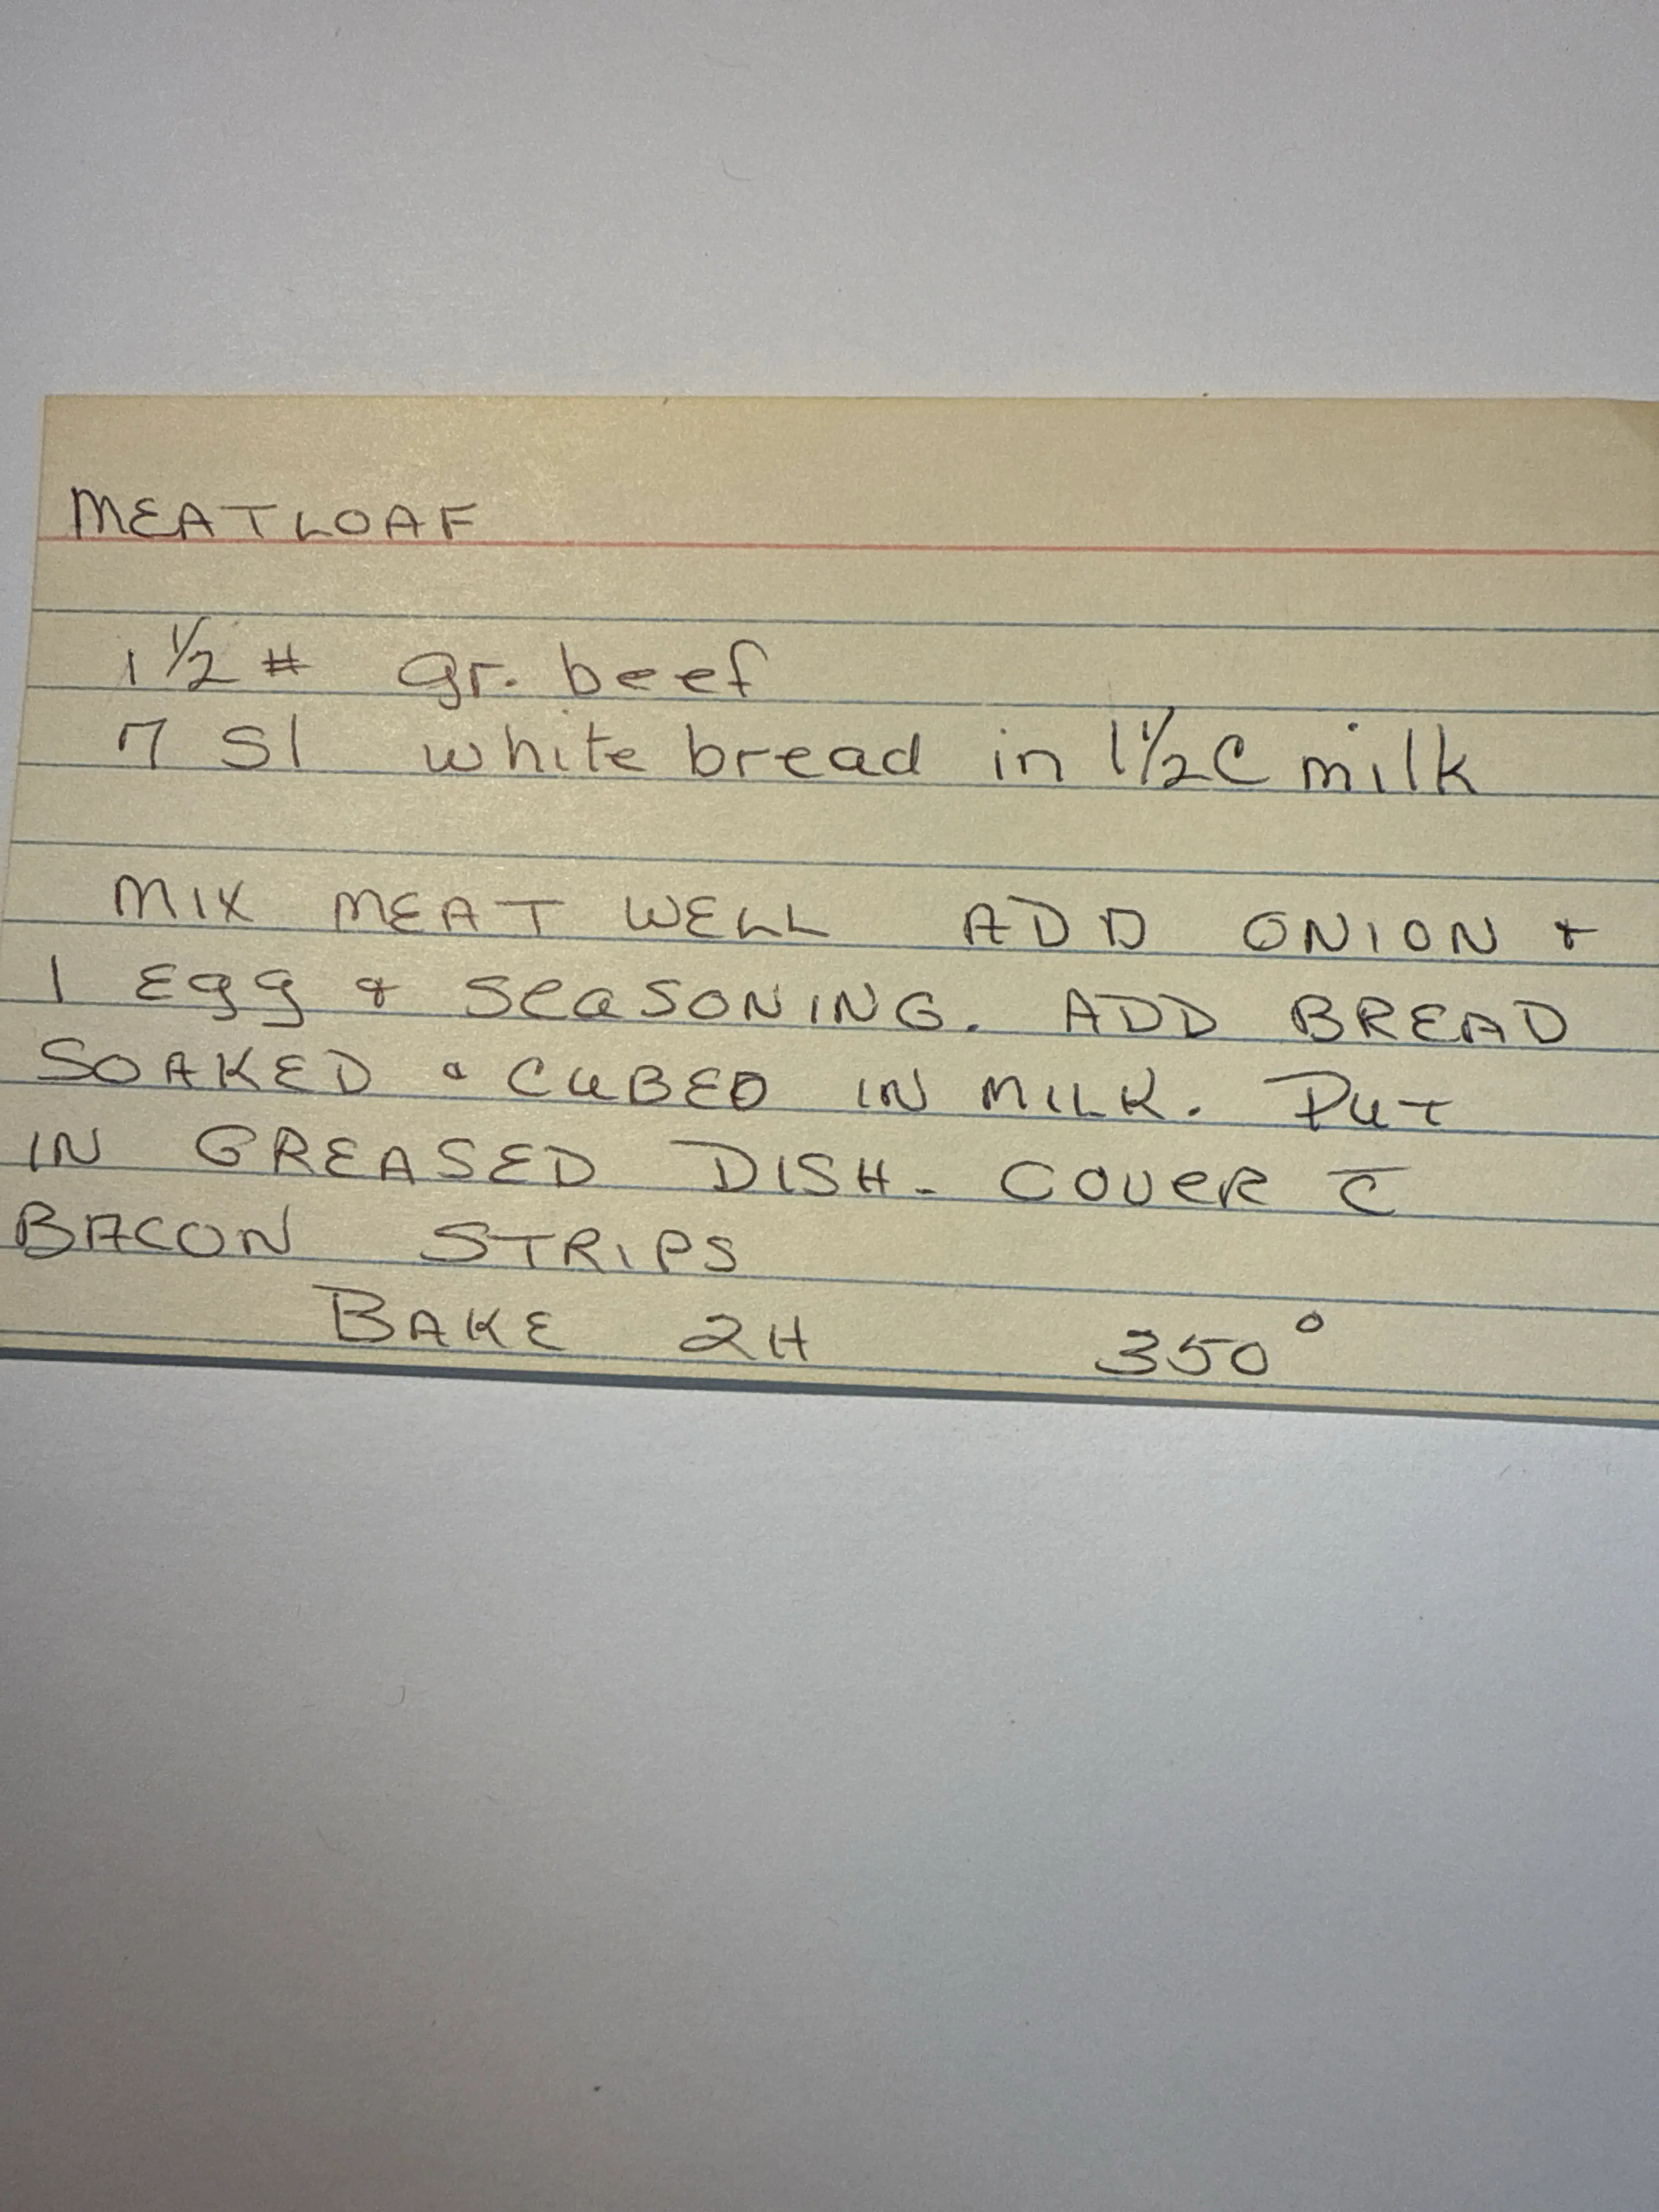 MEATLOAF
1 1/2 # gr. beef
7 sl white bread in 1 1/2 C milk
MIX MEAT WELL ADD ONION &
1 Egg & SeaSONING. ADD BREAD
SOAKED & CUBED IN MILK. PUT
IN GREASED DISH. COVER c̅
BACON STRIPS
BAKE 2H 350°